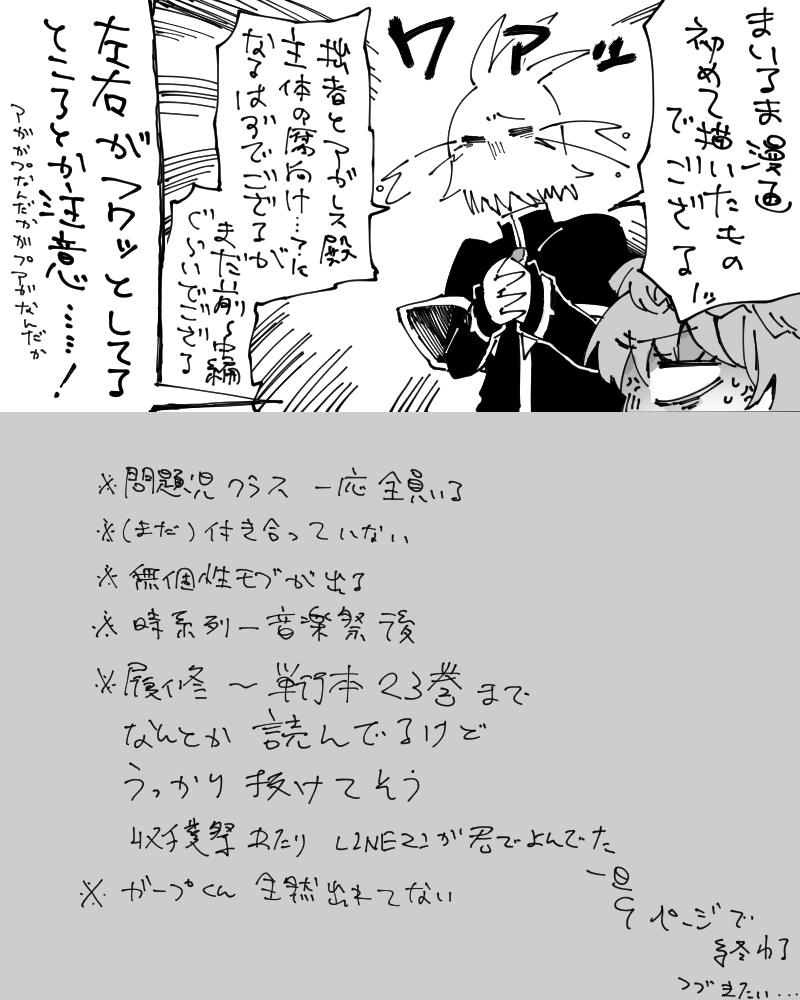 まいるま漫画
初めて描いたもの
でござる!!
ワァッ
拙者とアガレス殿
主体の腐向け…?に
なるはずでござるが
まだ前〜中編
ぐらいでござる
左右がフワッとしてる
ところとか注意……!
アガガプなんだかガプアガなんだか
※問題児クラス 一応全員いる
※(まだ)付き合っていない
※無個性モブが出る
※時系列一音楽祭後
※履修〜単行本23巻まで
なんとか読んでるけど
うっかり抜けてそう
収穫祭あたりLINEマンガ君でよんでた
※ガープくん全然出れてない
一旦
9ページで
終わる
つづきたい...